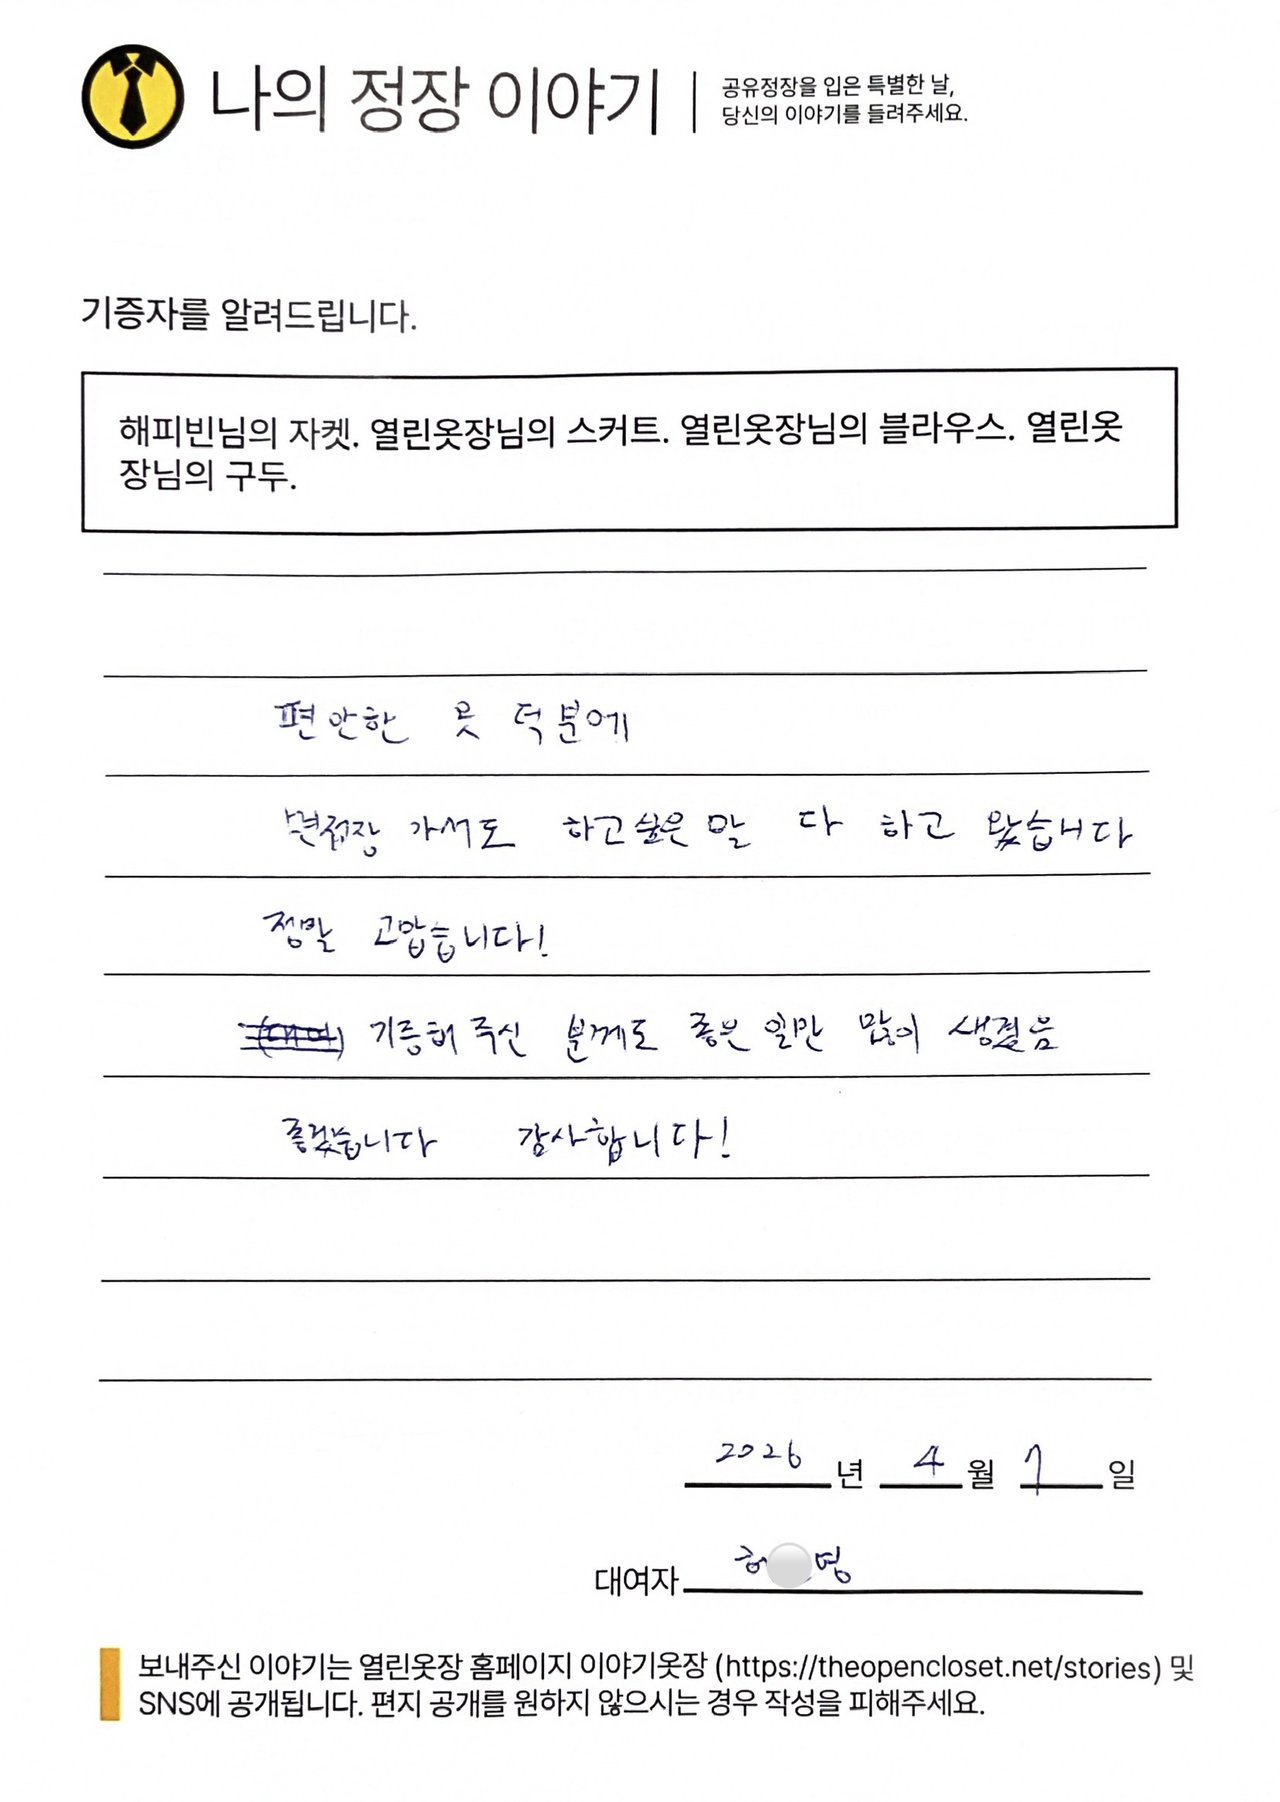 나의 정장 이야기
공유정장을 입은 특별한 날,
당신의 이야기를 들려주세요.
기증자를 알려드립니다.
해피빈님의 자켓. 열린옷장님의 스커트. 열린옷장님의 블라우스. 열린옷
장님의 구두.
편안한 옷 덕분에
면접장 가서도 하고싶은 말 다 하고 왔습니다
정말 고맙습니다!
기증해 주신 분께도 좋은 일만 많이 생겼음
좋겠습니다 감사합니다!
2026 년 4 월 1 일
대여자 허 영
보내주신 이야기는 열린옷장 홈페이지 이야기옷장 (https://theopencloset.net/stories) 및
SNS에 공개됩니다. 편지 공개를 원하지 않으시는 경우 작성을 피해주세요.